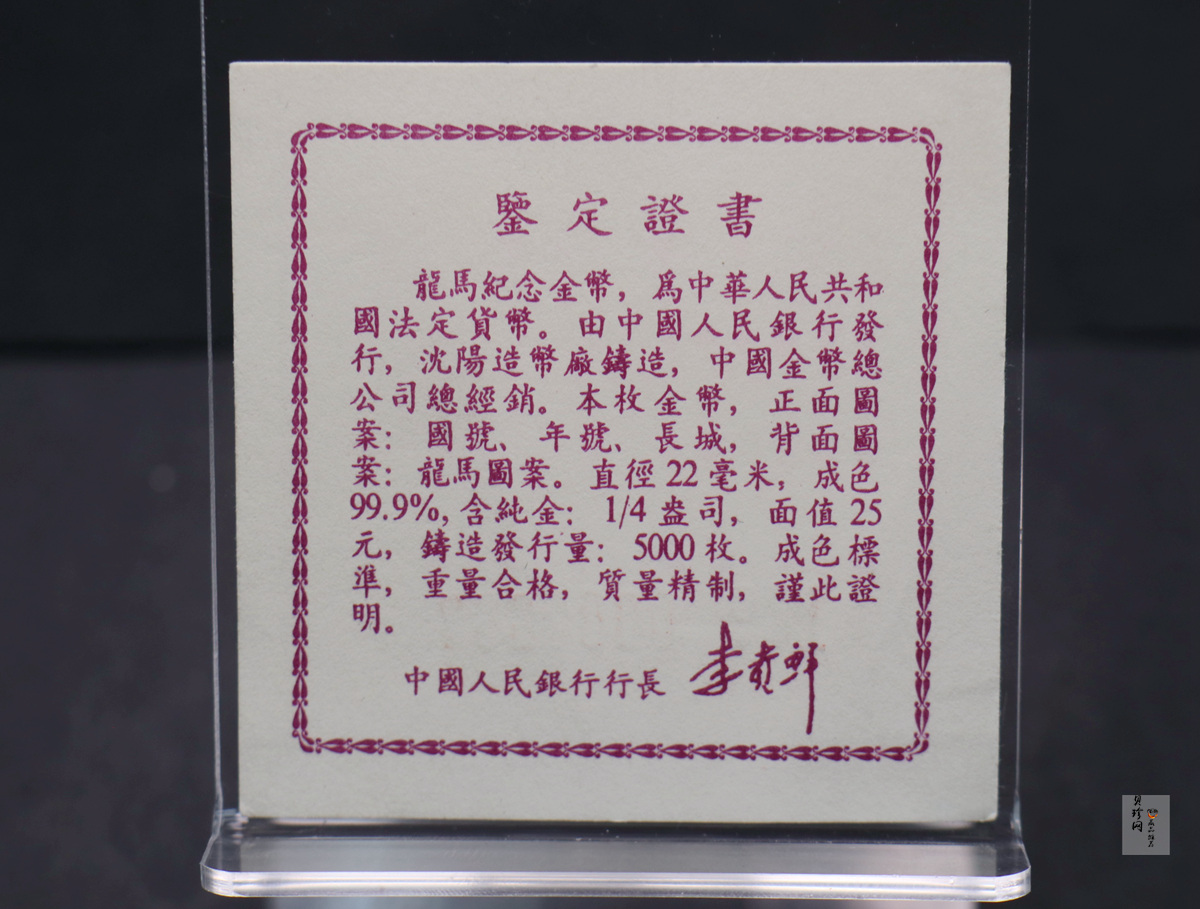 鑒定證書
龍馬紀念金幣，爲中華人民共和
國法定貨幣。由中國人民銀行發
行，沈陽造幣廠鑄造，中國金幣總
公司總經銷。本枚金幣，正面圖
案：國號、年號、長城，背面圖
案：龍馬圖案。直徑22毫米，成色
99.9%，含純金：1/4盎司，面值25
元，鑄造發行量：5000枚。成色標
準，重量合格，質量精制，謹此證
明。
中國人民銀行行長 李贵鲜
貝珍网